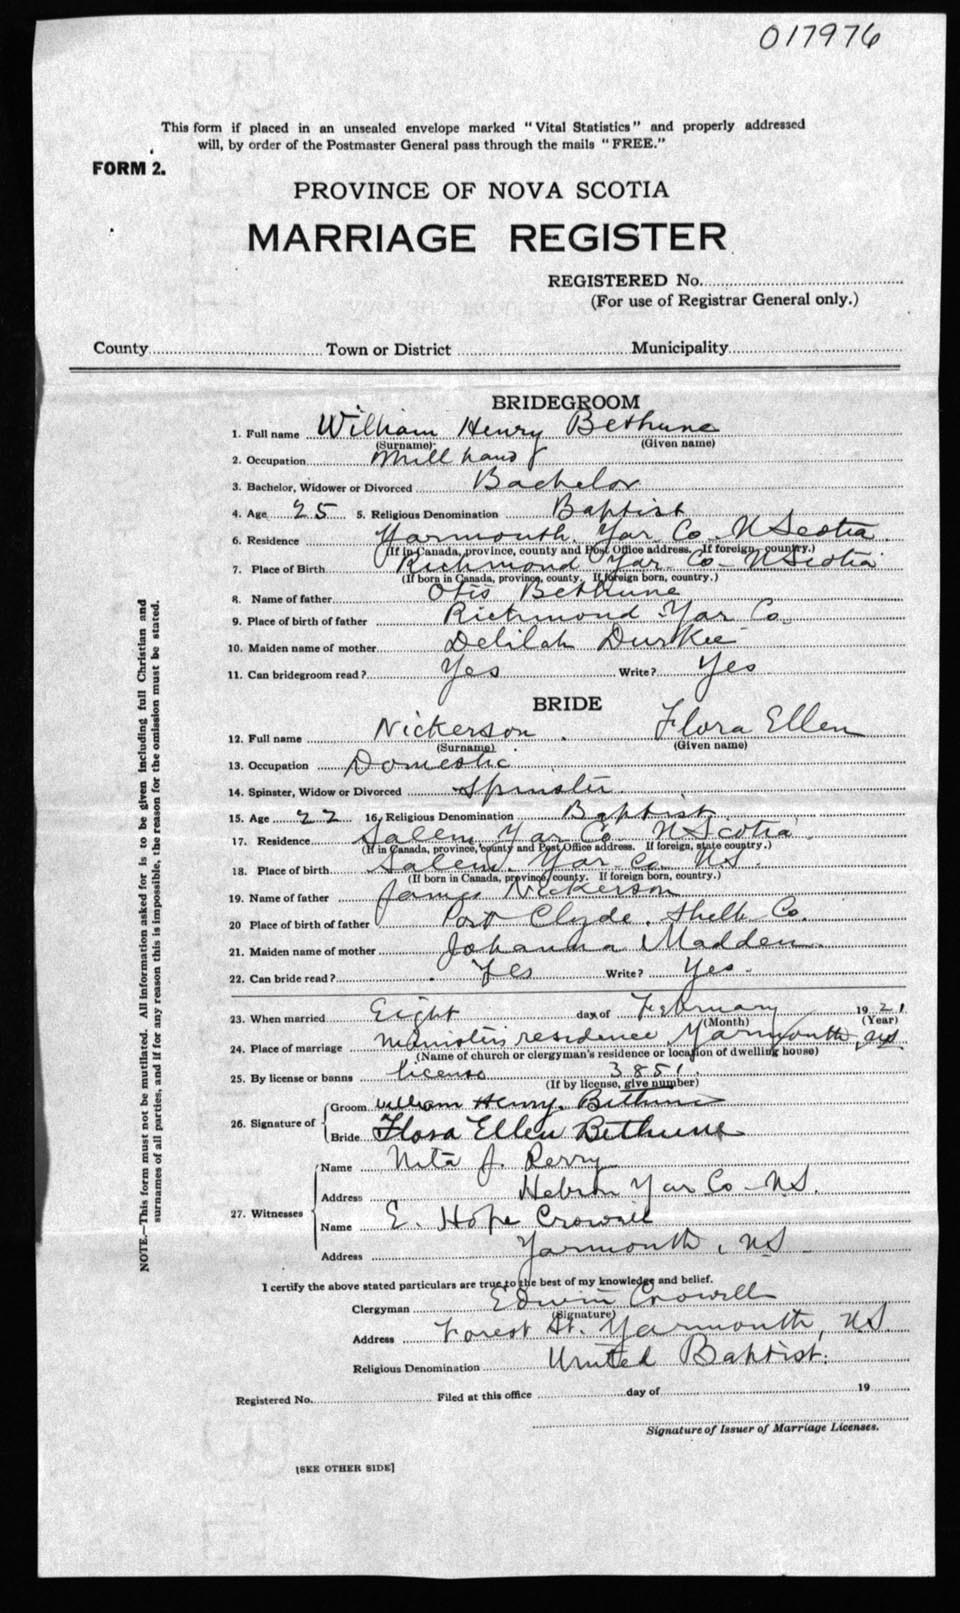 017976
This form if placed in an unsealed envelope marked "Vital Statistics" and properly addressed
will, by order of the Postmaster General pass through the mails "FREE."
FORM 2.
PROVINCE OF NOVA SCOTIA
MARRIAGE REGISTER
REGISTERED No.
(For use of Registrar General only.)
County Town or District Municipality
BRIDEGROOM
1. Full name William Henry Bethune
(Surname) (Given name)
2. Occupation Mill hand
3. Bachelor, Widower or Divorced Bachelor
4. Age 25 5. Religious Denomination Baptist
6. Residence Yarmouth Yar Co N Scotia
(If in Canada, province, county and Post Office address. If foreign, country.)
7. Place of Birth Richmond Yar Co - N Scotia
(If born in Canada, province, county. If foreign born, country.)
8. Name of father Otis Bethune
9. Place of birth of father Richmond Yar Co.
10. Maiden name of mother Delilah Durkee
11. Can bridegroom read? Yes Write? Yes
BRIDE
12. Full name Nickerson Flora Ellen
(Surname) (Given name)
13. Occupation Domestic
14. Spinster, Widow or Divorced Spinster
15. Age 22 16. Religious Denomination Baptist
17. Residence Salem Yar Co N Scotia
(If in Canada, province, county and Post Office address. If foreign, state country.)
18. Place of birth Salem Yar Co NS.
(If born in Canada, province, county. If foreign born, country.)
19. Name of father James Nickerson
20 Place of birth of father Port Clyde, Shelb Co.
21. Maiden name of mother Johanna Madden
22. Can bride read? Yes Write? Yes.
23. When married Eight day of February 1921
(Month) (Year)
24. Place of marriage Minister's residence Yarmouth, NS
(Name of church or clergyman's residence or location of dwelling house)
25. By license or banns license 3851.
(If by license, give number)
26. Signature of Groom William Henry Bethune
Bride Flora Ellen Bethune
27. Witnesses Name Nita J. Perry
Address Hebron Yar Co - NS.
Name E. Hope Crowell
Address Yarmouth, NS
I certify the above stated particulars are true to the best of my knowledge and belief.
Clergyman Edwin Crowell
(Signature)
Address Forest St. Yarmouth, NS.
Religious Denomination United Baptist.
Registered No. Filed at this office day of 19
Signature of Issuer of Marriage Licenses.
[SEE OTHER SIDE]
NOTE.—This form must not be mutilated. All information asked for is to be given including full Christian and
surnames of all parties, and if for any reason this is impossible, the reason for the omission must be stated.